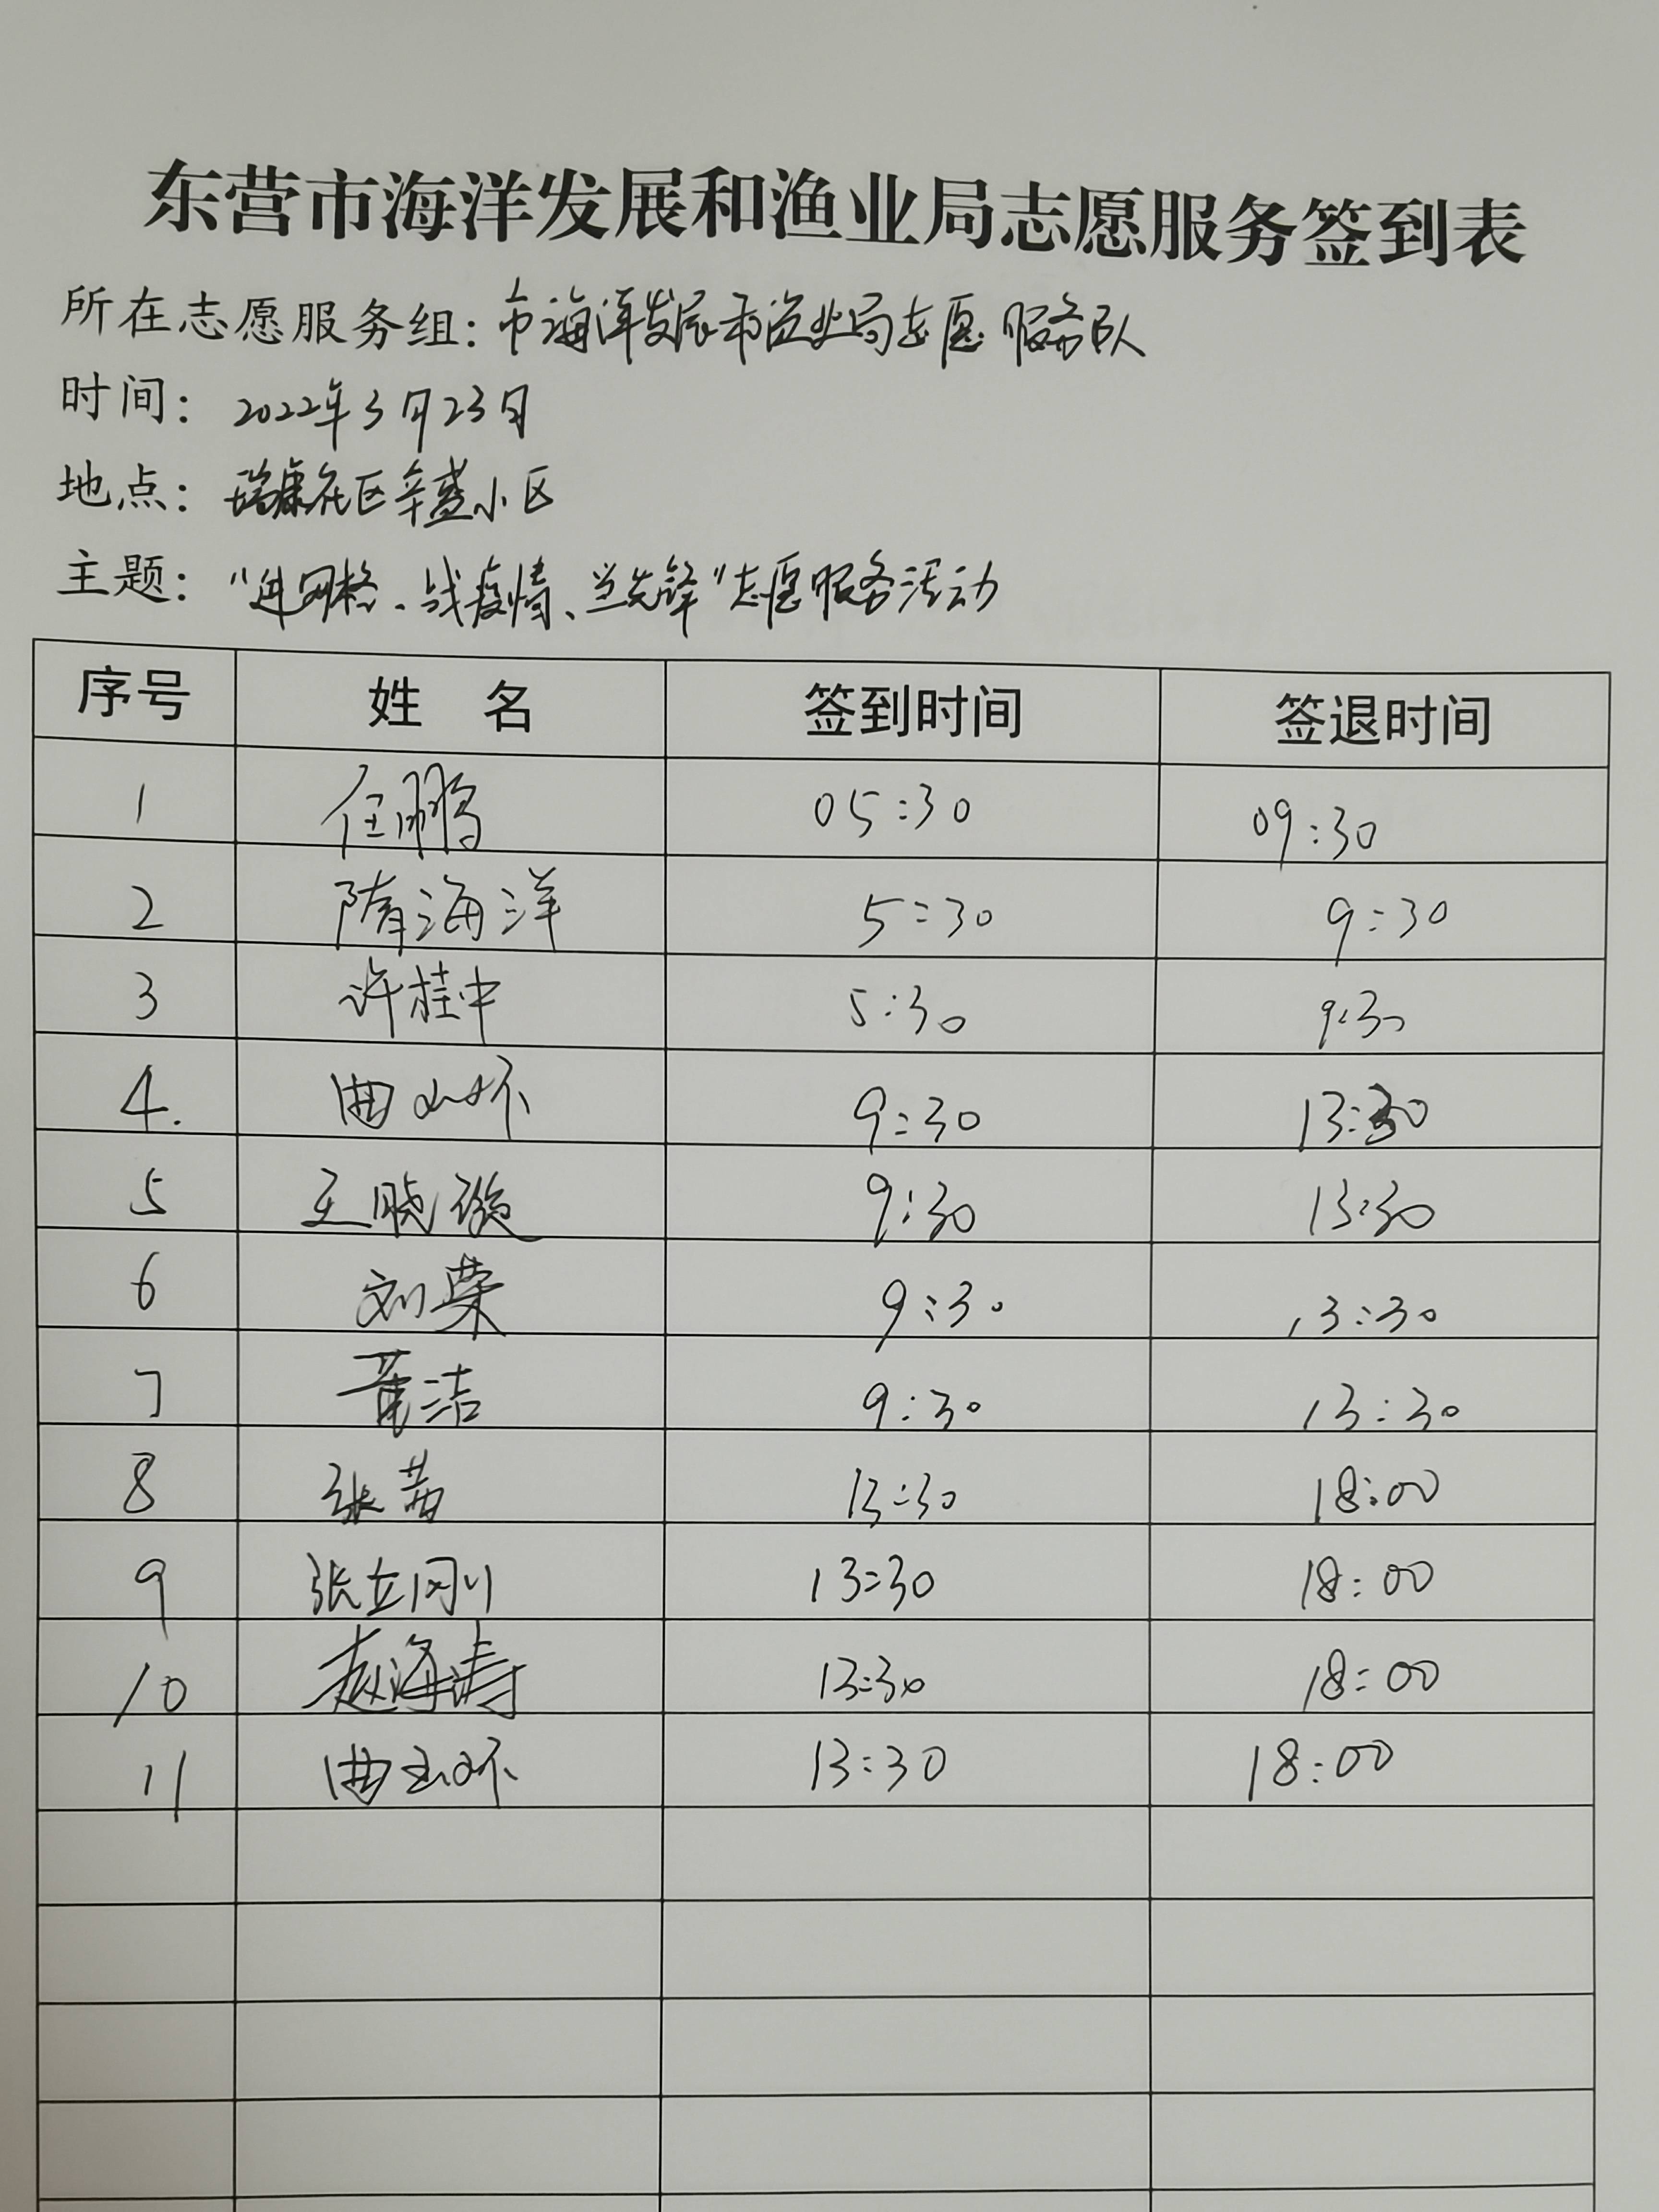 东营市海洋发展和渔业局志愿服务签到表
所在志愿服务组：市海洋发展和渔业局志愿服务队
时间：2022年3月23日
地点：瑞康社区辛盛小区
主题："进网格、战疫情、当先锋"志愿服务活动
序号 姓 名 签到时间 签退时间
1 任鹏 05:30 09:30
2 隋海洋 5:30 9:30
3 许桂中 5:30 9:30
4. 曲 9:30 13:30
5 王晓璇 9:30 13:30
6 刘荣 9:30 13:30
7 董洁 9:30 13:30
8 张茜 13:30 18:00
9 张立刚 13:30 18:00
10 赵海涛 13:30 18:00
11 曲玉环 13:30 18:00